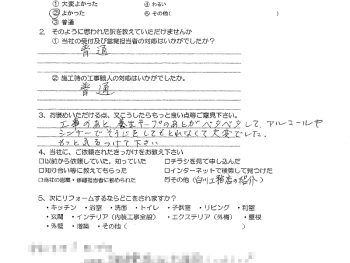 ① 大変よかった ④ わるい
② よかった ⑤ その他( )
③ 普通
2. そのように思われた訳を教えていただけませんか
① 当社の受付及び営業担当者の対応はいかがでしたか?
普通
② 施工時の工事職人の対応はいかがでしたか。
普通
3. お褒めいただける点、又こうしたらもっと良い点等ご意見下さい。
工事のあと、養生テープのあとがベタベタして、アルコールや
シンナーでそうじをしてもとれなくて大変でした。
もっと気をつけて下さい
4. 当社に、ご依頼されたきっかけをお教え下さい
□以前から依頼していた、知っていた □チラシを見て申し込んだ
□知り合い等に教えてもらった □インターネットで検索して見つけた
□当社の営業・修繕担当者に勧められた ☑その他(白川工務店の紹介)
5、次にリフォームするならどこをされますか?
・キッチン ・浴室 ・洗面 ・トイレ ・子供室 ・リビング ・和室
・玄関 ・インテリア(内装工事全般) ・エクステリア(外構) ・屋根
・外壁 ・増築 ・その他( )